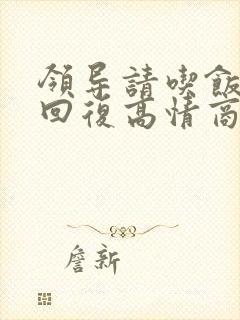 領导請喫飯
回復高情商
詹新